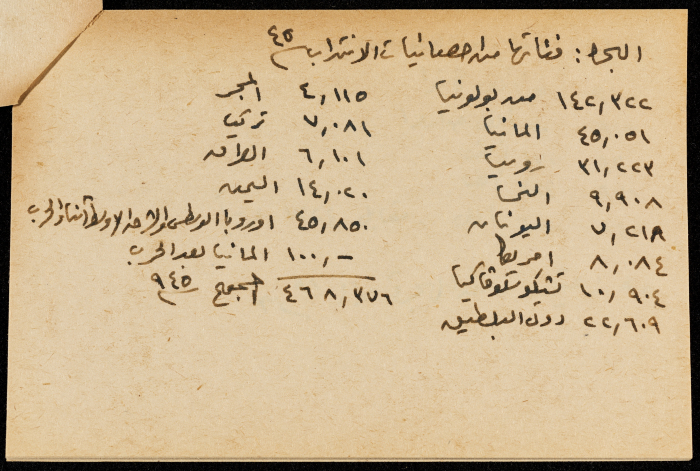 الهجرة: فئاتها من احصائيات الانتداب ٤٥
١٤٢,٣٢٢ من بولونيا
٤٥,٠٥١ المانيا
٣١,٢٢٣ روسيا
٩,٩٠٨ النمسا
٧,٢١٨ اليونان
٨,٠٨٤ امريكا
١٠,٩٠٤ تشيكوسلوفاكيا
٢٢,٦٠٩ دول البلطيق
٤,١١٥ المجر
٧,٠٨١ تركيا
٦,١٠١ العراق
١٤,٠٢٠ اليمن
٤٥,٨٥٠ اوروبا الوسطى والشرق الاوسط أثناء الحرب
١٠٠,- المانيا بعد الحرب
٤٦٨,٣٧٦ المجموع ٩٤٥